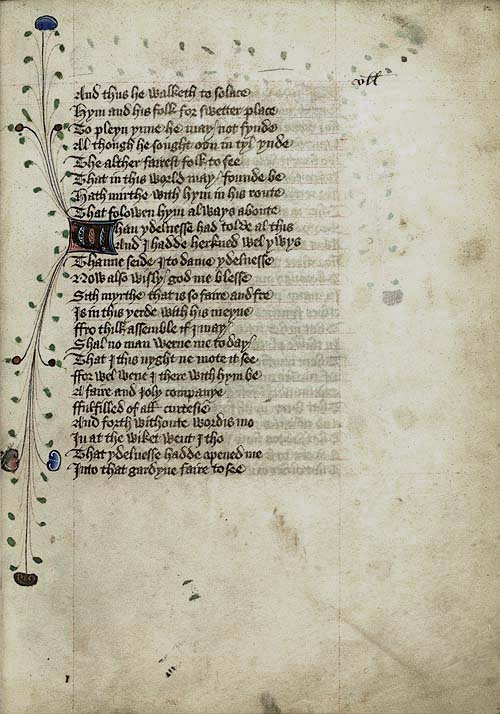 And thus he walketh to solace
Hym and his folk for swetter place
To pleyn ynne he may not fynde
All though he sought oon in tyl ynde
The alther fairest folk to see
That in this world may founde be
Hath mirthe with hym in his route
That folowen hym always aboute
Whan ydelnesse had tolde al this
And I hadde herkned wel ywys
Thanne seide I to dame ydelnesse
Now also wisly god me blesse
Sith myrthe that is so faire and fre
Is in this yerde with his meyne
ffro thilk assemble if I may
Shal no man werne me to day
That I this nyght ne mote it see
ffor wel wene I there with hym be
A faire and Joly companye
ffulfilled of all curtesie
And forth withoute wordis mo
In at the wiket went I tho
That ydelnesse hadde opened me
Into that gardyne faire to see